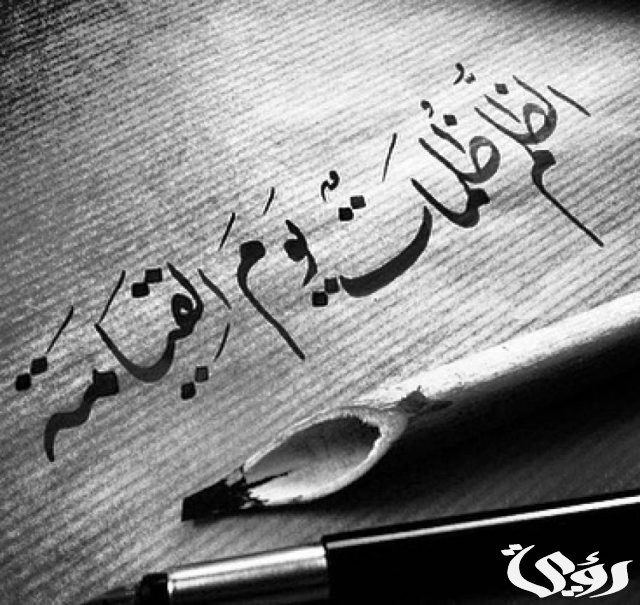 الظُّلم ظُلُماتٌ يومَ القِيَامَة
رؤية